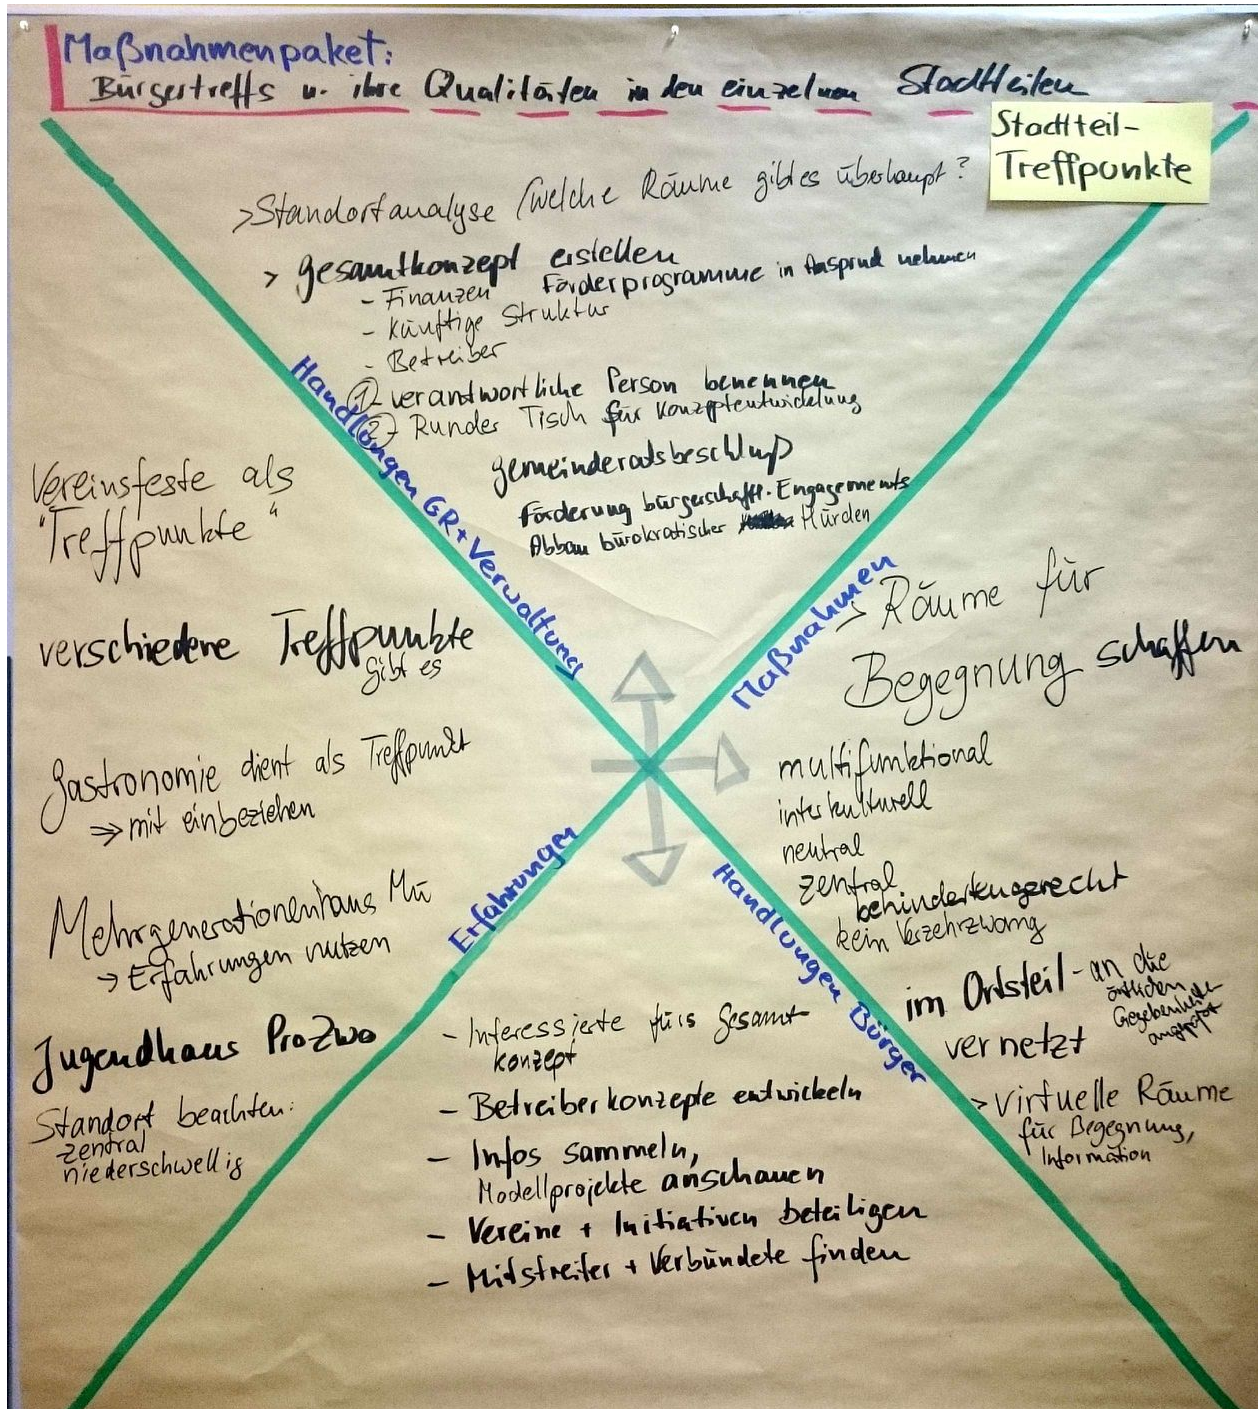 Maßnahmenpaket:
Bürgertreffs u. ihre Qualitäten in den einzelnen Stadtteilen
Stadtteil-
Treffpunkte
>Standortanalyse (welche Räume gibt es überhaupt?
> Gesamtkonzept erstellen
- Finanzen Förderprogramme in Anspruch nehmen
- Künftige Struktur
- Betreiber
① verantwortliche Person benennen
② Runder Tisch für Konzeptentwicklung
Gemeinderatsbeschluß
Förderung bürgerschaftl. Engagements
Abbau bürokratischer Hürden
Handlungen GR + Verwaltung
Vereinsfeste als
"Treffpunkte"
verschiedene Treffpunkte
gibt es
Gastronomie dient als Treffpunkt
=> mit einbeziehen
Mehrgenerationenhaus Mü
-> Erfahrungen nutzen
Jugendhaus ProZwo
Standort beachten:
zentral
niederschwellig
Erfahrungen
Maßnahmen
> Räume für
Begegnung schaffen
multifunktional
interkulturell
neutral
zentral
behindertengerecht
kein Verzehrzwang
im Ortsteil - an die
örtlichen
Gegebenheiten
angepaßt
vernetzt
> Virtuelle Räume
für Begegnung,
Information
Handlungen Bürger
- Interessierte fürs Gesamt-
konzept
- Betreiberkonzepte entwickeln
- Infos sammeln,
Modellprojekte anschauen
- Vereine + Initiativen beteiligen
- Mitstreiter + Verbündete finden